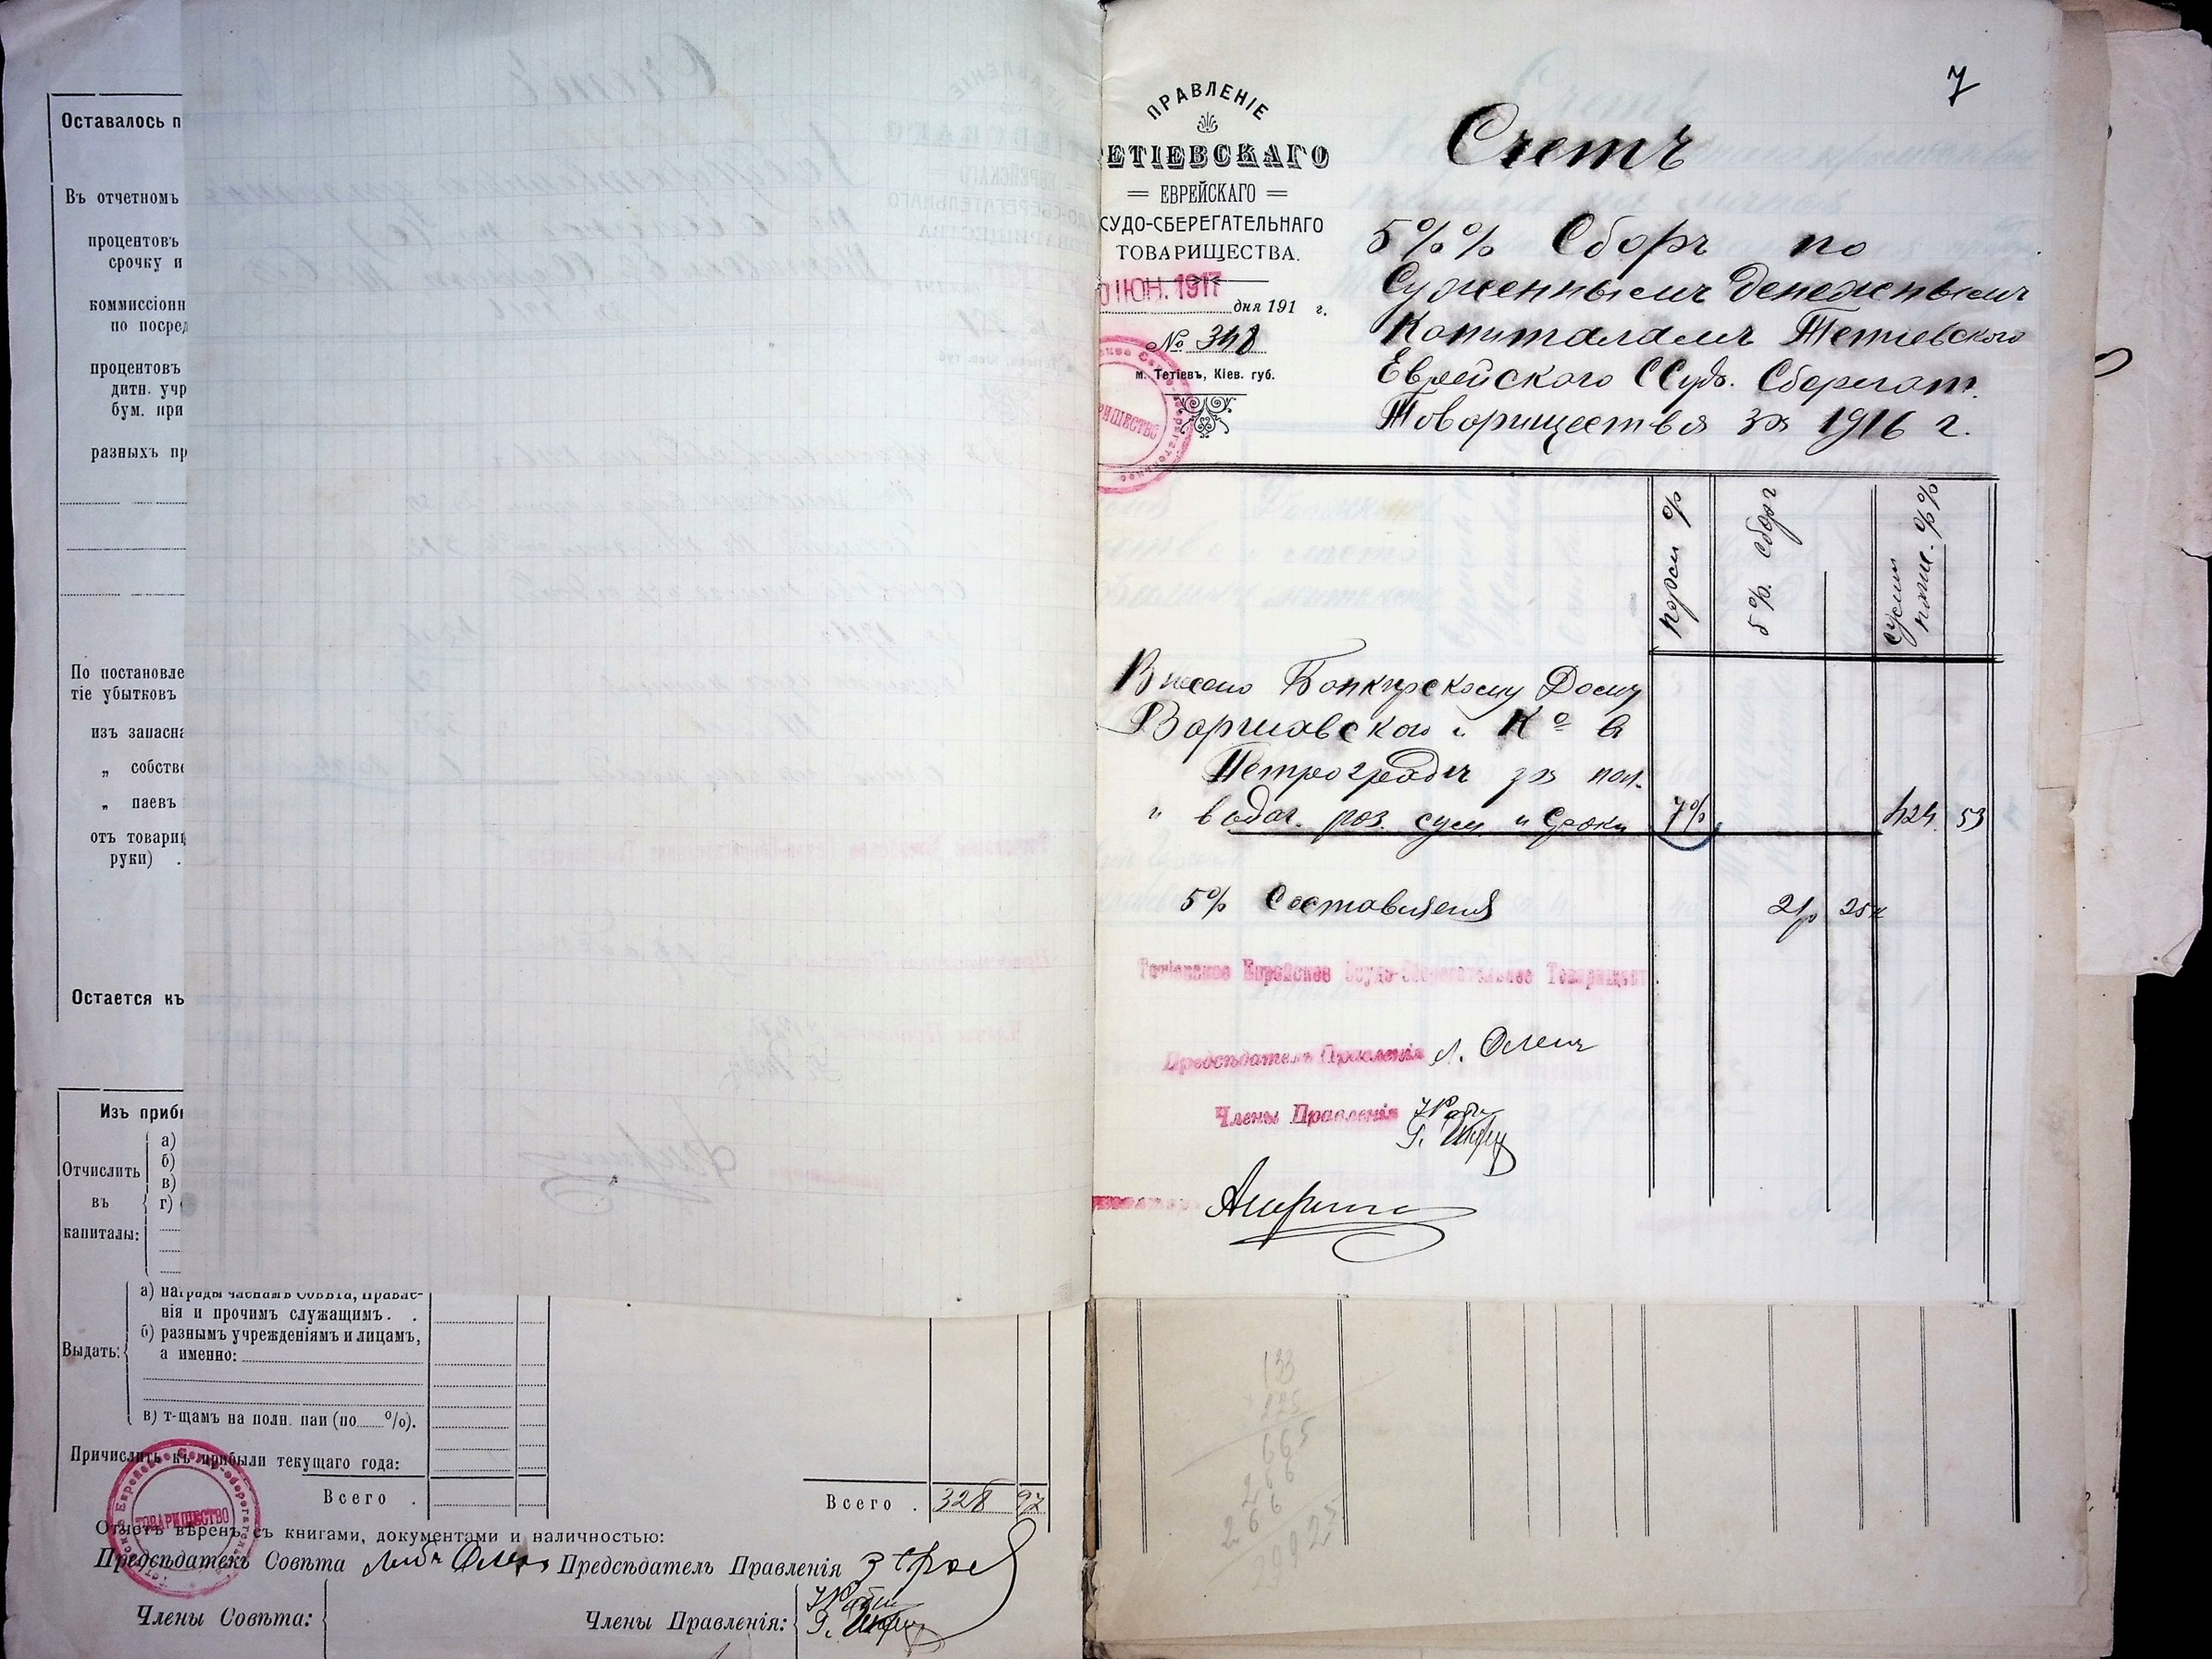 Оставалось п
Въ отчетномъ
процентовъ
срочку и
коммиссіонн
по посред
процентовъ
дитн. учр
бум. при
разныхъ пр
По постановле
тіе убытковъ
изъ запасна
„ собстве
„ паевъ
отъ товарищ
руки) .
Остается къ
Изъ приб
Отчислить
въ
капиталы:
а)
б)
в)
г)
Выдать:
а) награды членамъ Совѣта, Правле-
нія и прочимъ служащимъ. .
б) разнымъ учрежденіямъ и лицамъ,
а именно:
в) т-щамъ на полн. паи (по %).
Причислить къ прибыли текущаго года:
Всего .
Всего . 328 97
ТОВАРИЩЕСТВО
Отчетъ вѣренъ съ книгами, документами и наличностью:
Предсѣдатель Совѣта
Предсѣдатель Правленія
Члены Совѣта:
Члены Правленія:
7
ПРАВЛЕНІЕ
ЕТІЕВСКАГО
ЕВРЕЙСКАГО
СУДО-СБЕРЕГАТЕЛЬНАГО
ТОВАРИЩЕСТВА.
ІЮН. 1917
дня 191 г.
№ 348
м. Тетіевъ, Кіев. губ.
Счетъ
5%% Сборъ по
Суженнымъ Денежнымъ
Капиталамъ Тетіевского
Еврейского ССудо. Сберегат.
Товарищества за 1916 г.
5%. Сборъ
Сумм
%%
Внесено Банкирскому Дому
Варшавского и Ко в
Петроградѣ за пол.
" в одог. роз. сум и Сроки 7% 424 53
5% Составляетъ 21р 25к
Тетіевское Еврейское Ссудо-Сберегательное Товарищест
Предсѣдатель Правленія
Члены Правленія
133
225
665
266
266
29925